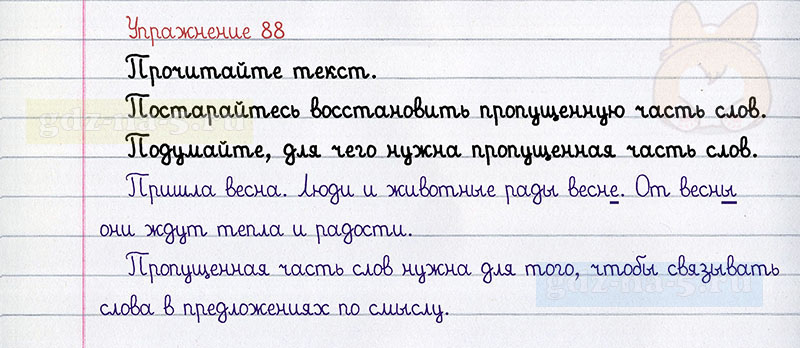 Упражнение 88
Прочитайте текст.
Постарайтесь восстановить пропущенную часть слов.
Подумайте, для чего нужна пропущенная часть слов.
Пришла весна. Люди и животные рады весне. От весны
они ждут тепла и радости.
Пропущенная часть слов нужна для того, чтобы связывать
слова в предложениях по смыслу.